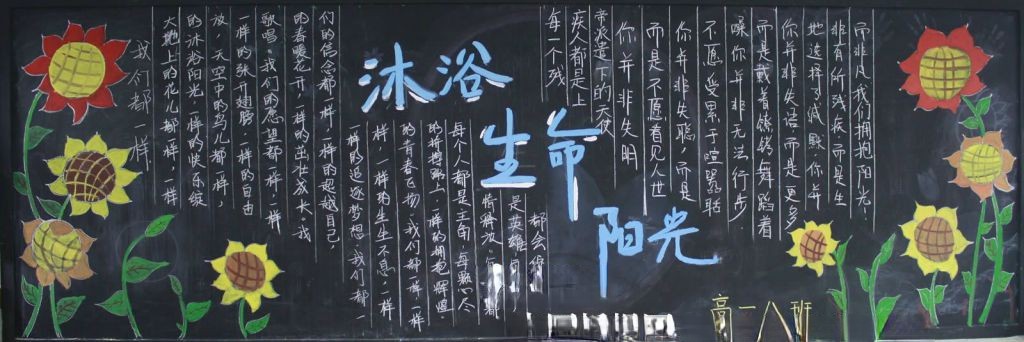 我们都一样
大地上的花儿都一样，一样
的沐浴阳光，一样的快乐绽
放，天空中的鸟儿都一样，
一样的张开翅膀，一样的自由
歌唱。我们的愿望都一样，一样
的春暖花开，一样的茁壮成长。我
们的信念都一样，一样的超越自己，
一样的追逐梦想。我们都一
样，一样的生生不息，一样
的青春飞扬。我们都一样，一样
上，一样的拥抱辉煌。
每个人都是主角，每颗心尽
情释放，
是英雄
都会
沐浴
生命
阳光
每一个残
疾人都是上
帝派遣下的天使
你并非失明
而是不愿看见人世
你并非失聪，而是
不愿受累于喧嚣聒
噪你并非无法行步
而是戴着镣铐舞蹈着
你并非失语，而是更多
地选择了缄默．你并
非有所残疾而是生
而非凡，我们拥抱阳光！
高一八班